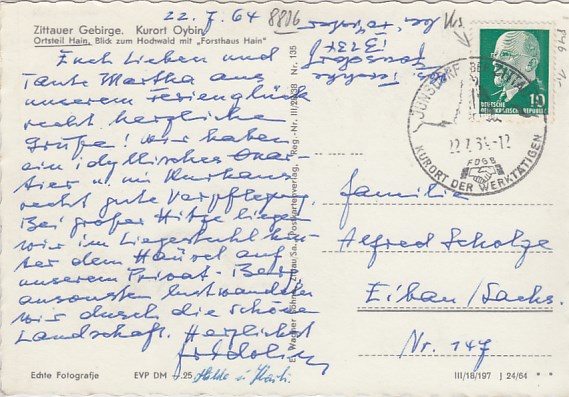 22. 7. 64 8806
Zittauer Gebirge. Kurort Oybin,
Ortsteil Hain, Blick zum Hochwald mit „Forsthaus Hain"
Euch Lieben und
Tante Martha aus
unserem Ferienglück
recht herzliche
Grüße! Wir haben
ein idyllisches Quar-
tier u. im Kurhaus
recht gute Verpflegung.
Bei großer Hitze liegen
wir im Liegestuhl hin-
ter dem Häusel auf
unserem Privat-Berg,
ansonsten lustwandeln
wir durch die schöne
Landschaft. Herzlichst
Hilde u.
Echte Fotografie EVP DM –.25
Reg.-Nr. III/28/38 Nr. 135
JONSDORF
22.7.64-12
FDGB
KURORT DER WERKTÄTIGEN
DEUTSCHE
DEMOKRATISCHE REPUBLIK
10
Familie
Alfred Scholze
Eibau/Sachs.
Nr. 147
III/18/197 J 24/64 * *